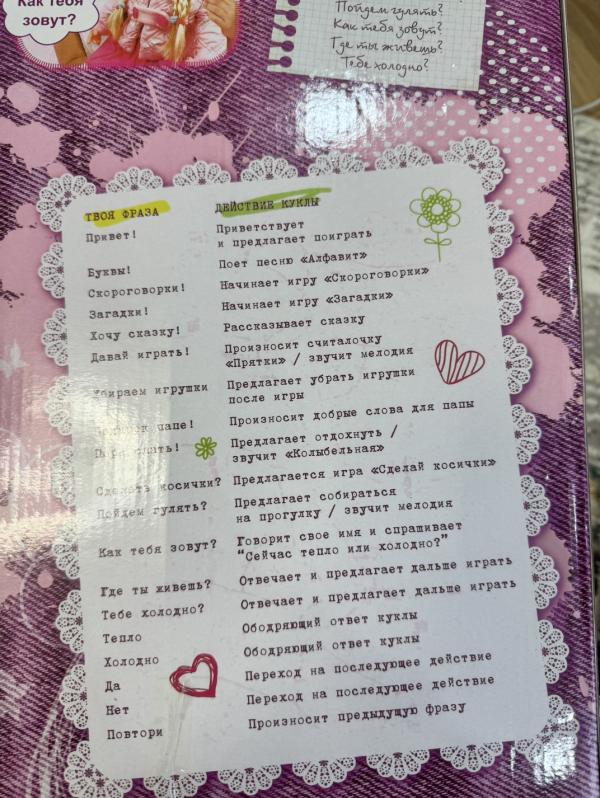 Как тебя
зовут?
Пойдем гулять?
Как тебя зовут?
Где ты живешь?
Тебе холодно?
ТВОЯ ФРАЗА ДЕЙСТВИЕ КУКЛЫ
Привет! Приветствует
и предлагает поиграть
Буквы! Поет песню «Алфавит»
Скороговорки! Начинает игру «Скороговорки»
Загадки! Начинает игру «Загадки»
Хочу сказку! Рассказывает сказку
Давай играть! Произносит считалочку
«Прятки» / звучит мелодия
Убираем игрушки Предлагает убрать игрушки
после игры
папе! Произносит добрые слова для папы
спать! Предлагает отдохнуть /
звучит «Колыбельная»
Сделать косички? Предлагается игра «Сделай косички»
Пойдем гулять? Предлагает собираться
на прогулку / звучит мелодия
Как тебя зовут? Говорит свое имя и спрашивает
"Сейчас тепло или холодно?"
Где ты живешь? Отвечает и предлагает дальше играть
Тебе холодно? Отвечает и предлагает дальше играть
Тепло Ободряющий ответ куклы
Холодно Ободряющий ответ куклы
Да Переход на последующее действие
Нет Переход на последующее действие
Повтори Произносит предыдущую фразу